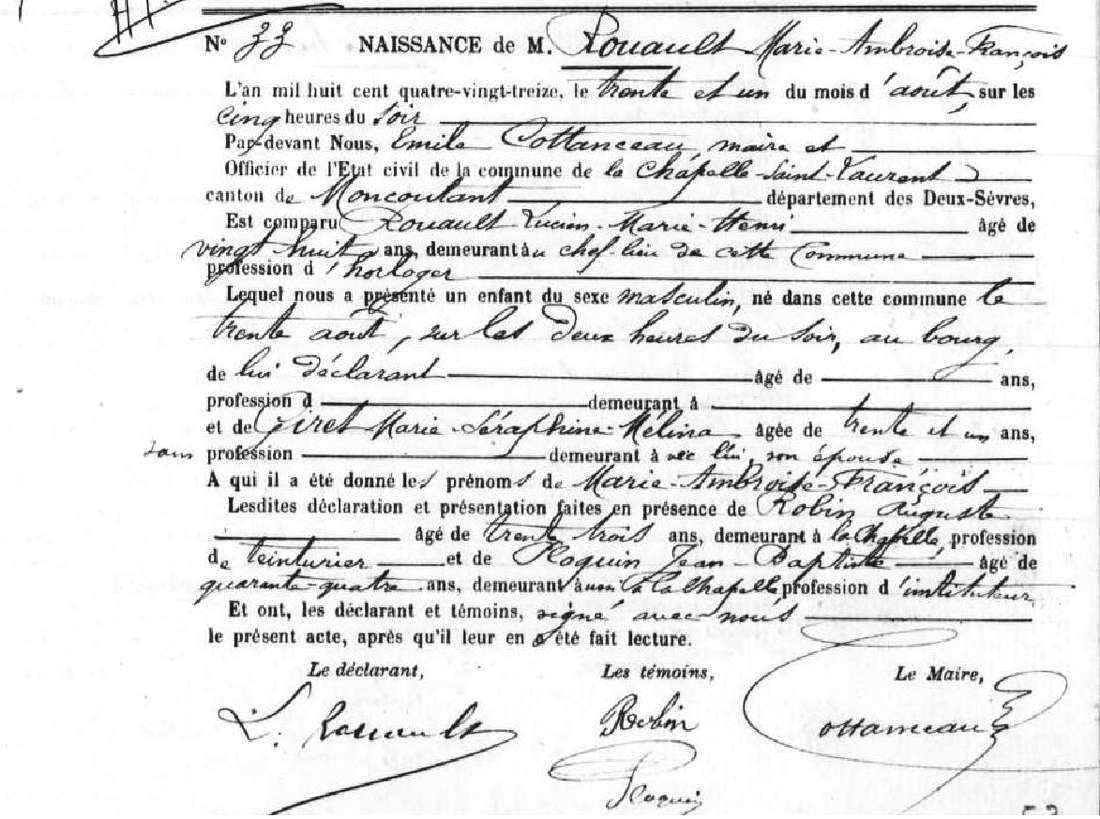 N° 33 NAISSANCE de M. Rouault Marie-Ambroise-François
L'an mil huit cent quatre-vingt-treize, le trente et un du mois d'août, sur les
cinq heures du soir
Par-devant Nous, Emile Cottanceau, maire et
Officier de l'Etat civil de la commune de la Chapelle-Saint-Laurent
canton de Moncoutant département des Deux-Sèvres,
Est comparu Rouault Lucien-Marie-Henri âgé de
vingt huit ans, demeurant au chef-lieu de cette Commune
profession d'horloger
Lequel nous a présenté un enfant du sexe masculin, né dans cette commune le
trente août, sur les deux heures du soir, au bourg,
de lui déclarant âgé de ans,
profession d demeurant à
et de Giret Marie-Séraphine-Mélina âgée de trente et un ans,
sans profession demeurant avec lui, son épouse
A qui il a été donné les prénoms de Marie-Ambroise-François
Lesdites déclaration et présentation faites en présence de Robin Auguste
âgé de trente trois ans, demeurant à la Chapelle, profession
de teinturier et de Ploquin Jean-Baptiste âgé de
quarante-quatre ans, demeurant aussi à la Chapelle profession d'instituteur
Et ont, les déclarant et témoins, signé avec nous
le présent acte, après qu'il leur en a été fait lecture.
Le déclarant, Les témoins, Le Maire,
L. Rouault Robin Cottanceau
Ploquin